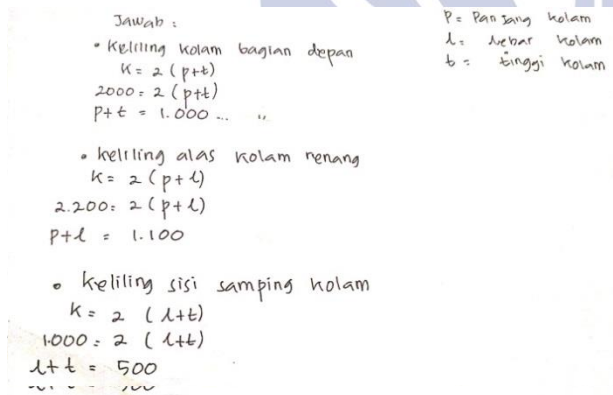 Jawab :
• Keliling kolam bagian depan
K = 2 (p+t)
2000 = 2 (p+t)
p+t = 1.000 ...
• keliling alas kolam renang
K = 2 (p+l)
2.200 = 2 (p+l)
p+l = 1.100
• Keliling sisi samping kolam
K = 2 (l+t)
1.000 = 2 (l+t)
l+t = 500
P = Panjang kolam
l = lebar kolam
t = tinggi kolam